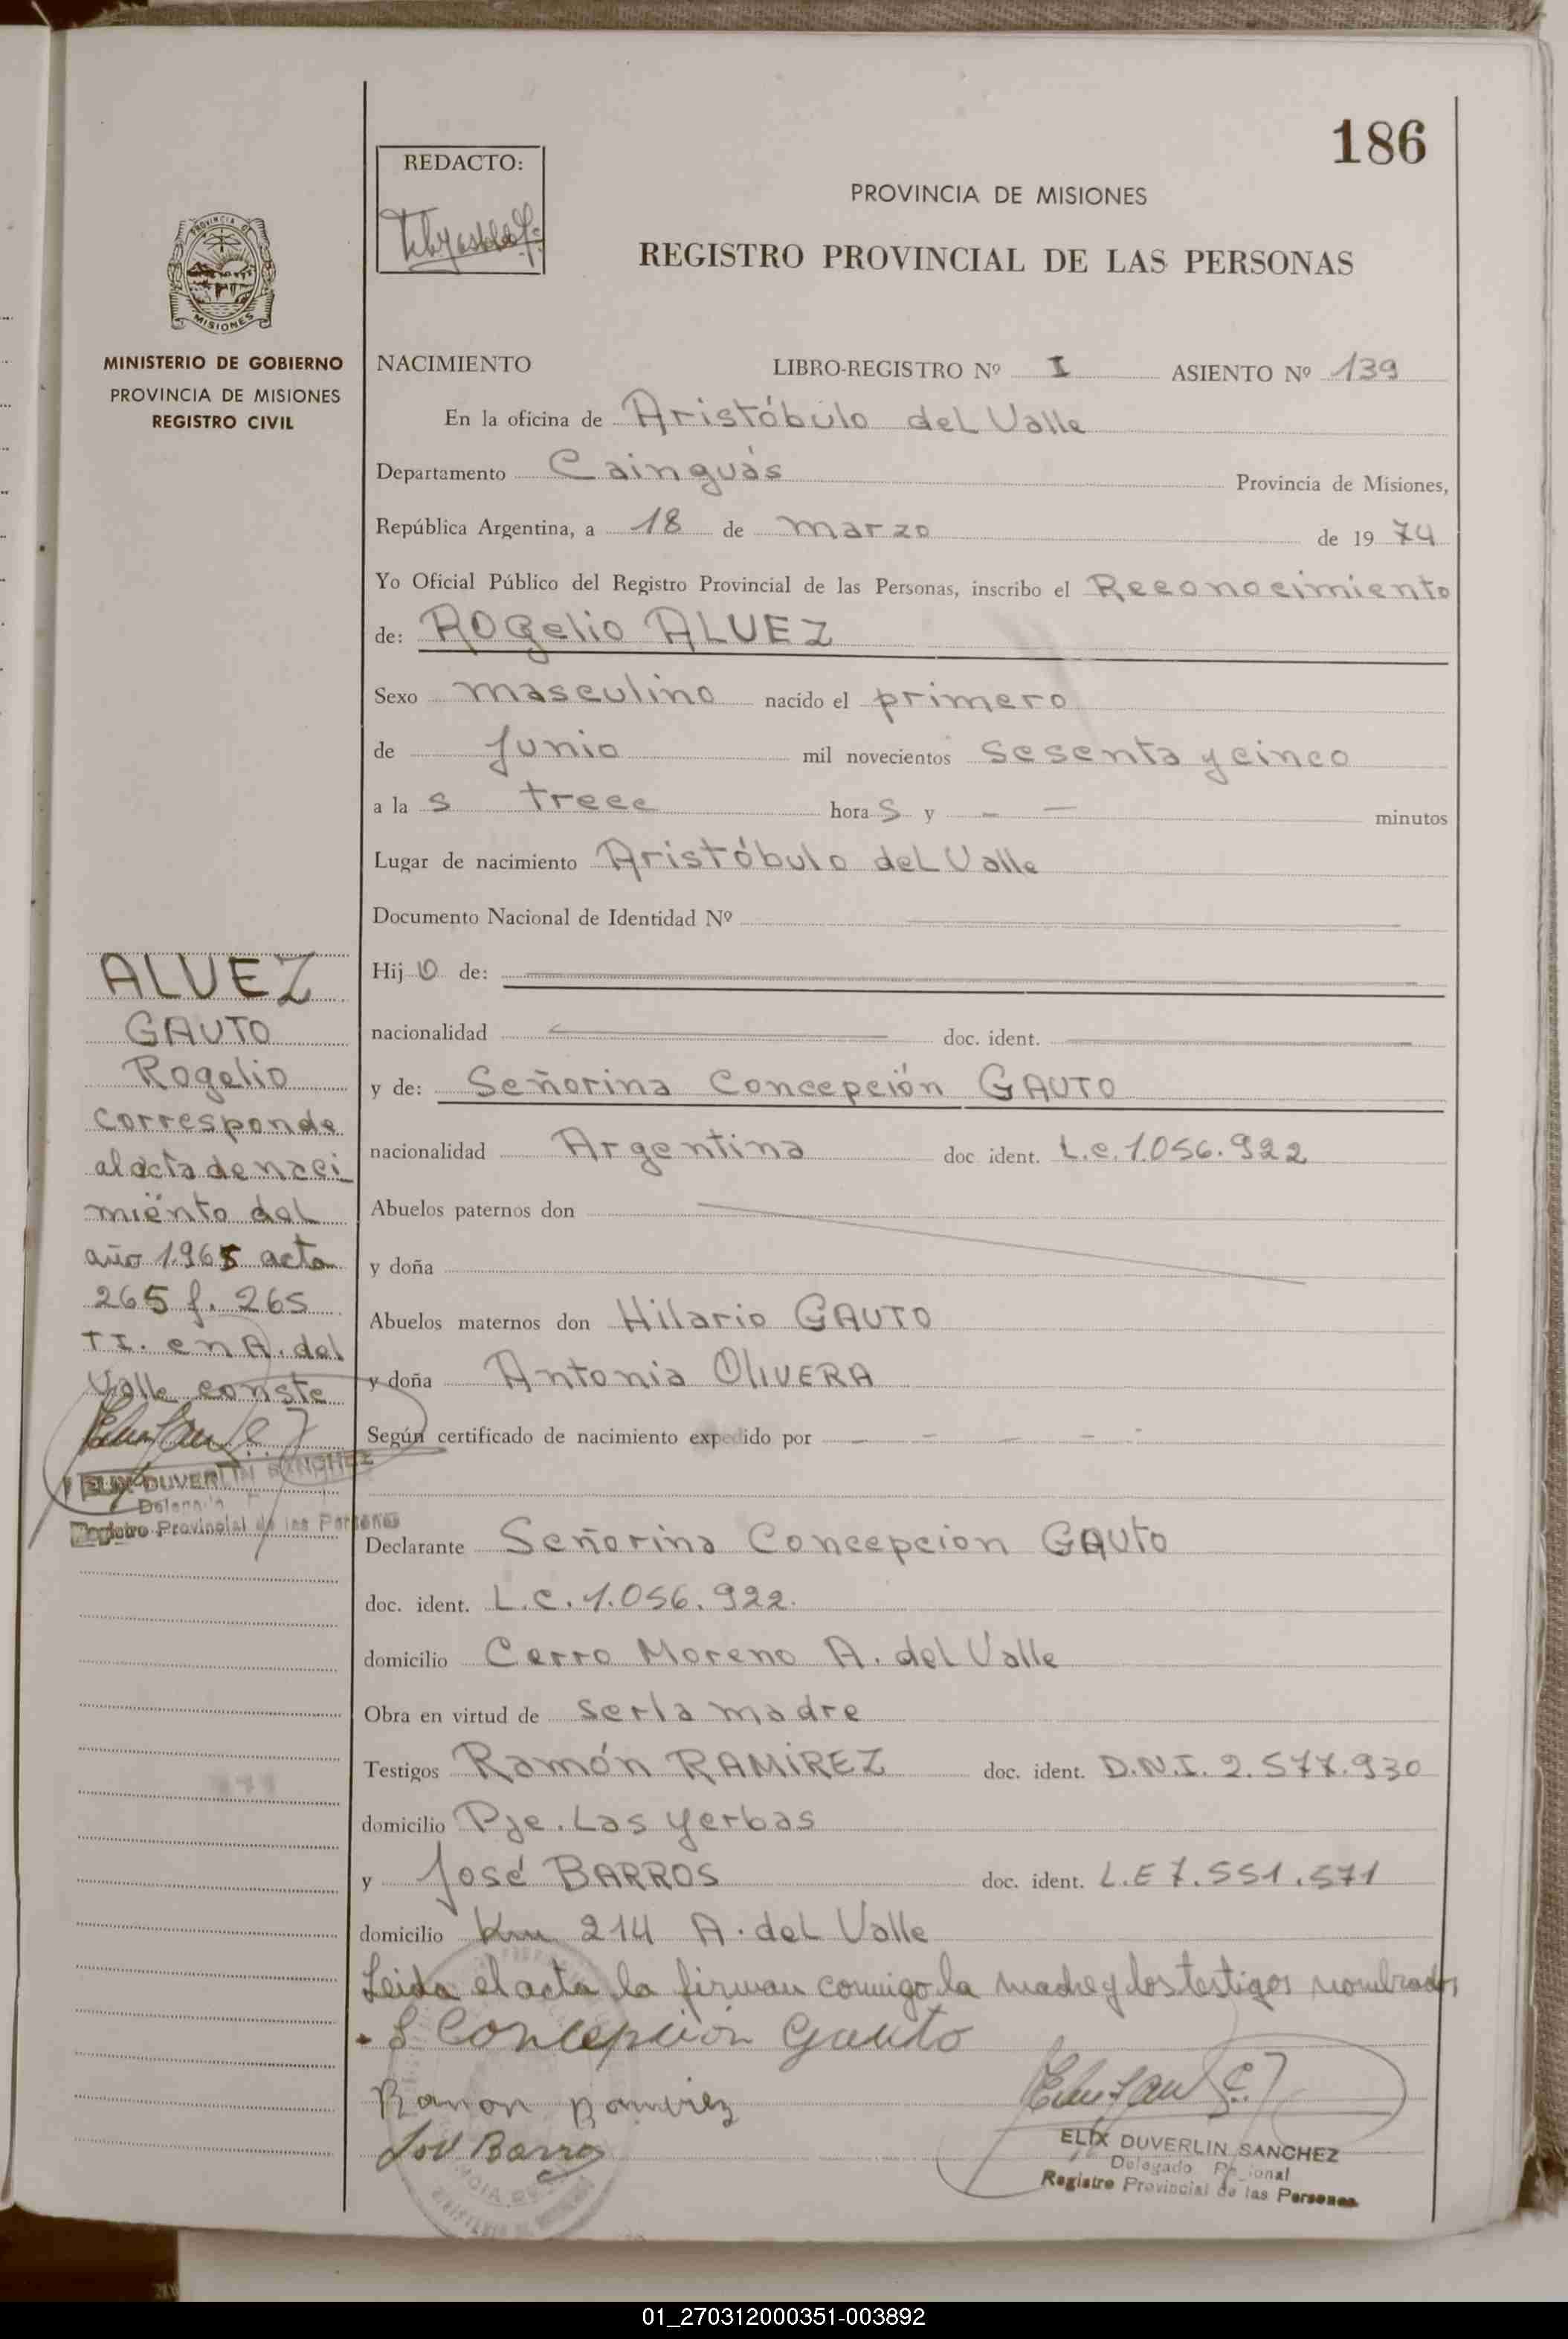 186
REDACTO:
PROVINCIA DE MISIONES
REGISTRO PROVINCIAL DE LAS PERSONAS
PROVINCIA DE
MISIONES
MINISTERIO DE GOBIERNO
PROVINCIA DE MISIONES
REGISTRO CIVIL
NACIMIENTO LIBRO-REGISTRO Nº I ASIENTO Nº 139
En la oficina de Aristóbulo del Valle
Departamento Cainguás Provincia de Misiones,
República Argentina, a 18 de marzo de 19 74
Yo Oficial Público del Registro Provincial de las Personas, inscribo el Reconocimiento
de: Rogelio ALVEZ
Sexo masculino nacido el primero
de Junio mil novecientos sesenta y cinco
a la s trece hora s y – — minutos
Lugar de nacimiento Aristóbulo del Valle
Documento Nacional de Identidad Nº
Hij o de:
nacionalidad doc. ident.
y de: Señorina Concepción GAUTO
nacionalidad Argentina doc ident. L.C. 1.056.922
Abuelos paternos don
y doña
Abuelos maternos don Hilario GAUTO
y doña Antonia OliVERA
Según certificado de nacimiento expedido por – – – – –
Declarante Señorina Concepcion GAUTO
doc. ident. L.C. 1.056.922.
domicilio Cerro Moreno A. del Valle
Obra en virtud de ser la madre
Testigos Ramón RAMÍREZ doc. ident. D.N.I. 2.577.930
domicilio Pje. Las Yerbas
y José BARROS doc. ident. L.E 7.551.571
domicilio Km 214 A. del Valle
Leida el acta la firman conmigo la madre y los testigos nombrados
S Concepcion Gauto
Ramon Ramirez
José Barros
ELIX DUVERLIN SANCHEZ
Delegado
Registro Provincial de las Personas
ALVEZ
GAUTO
Rogelio
corresponde
al acta de naci
miento del
año 1965 acta
265 f. 265
TI. en A. del
Valle conste
ELIX DUVERLIN SANCHEZ
Delegado
Registro Provincial de las Personas
01_270312000351-003892